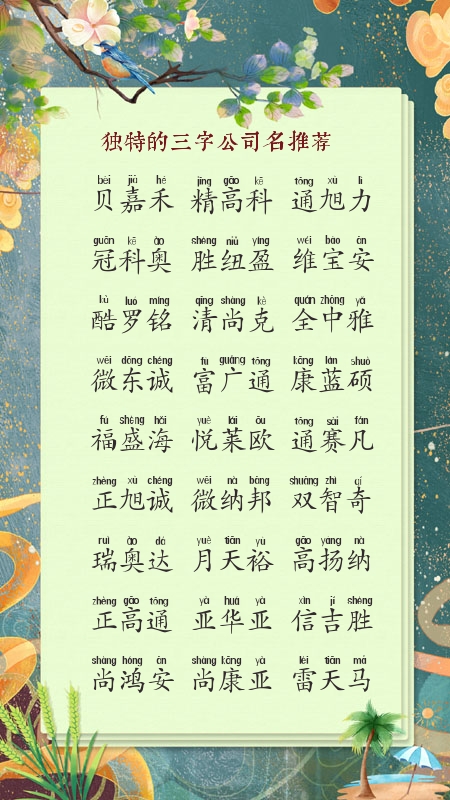 独特的三字公司名推荐
bèi jiā hé jīng gāo kē tōng xù lì
贝嘉禾 精高科 通旭力
guān kē ào shèng niǔ yíng wéi bǎo ān
冠科奥 胜纽盈 维宝安
kù luó míng qīng shàng kè quán zhōng yǎ
酷罗铭 清尚克 全中雅
wēi dōng chéng fù guǎng tōng kāng lán shuò
微东诚 富广通 康蓝硕
fú shèng hǎi yuè lái ōu tōng sài fán
福盛海 悦莱欧 通赛凡
zhèng xù chéng wēi nà bāng shuāng zhì qí
正旭诚 微纳邦 双智奇
ruì ào dá yuè tiān yù gāo yáng nà
瑞奥达 月天裕 高扬纳
zhèng gāo tōng yà huá yà xìn jí shèng
正高通 亚华亚 信吉胜
shàng hóng ān shàng kāng yà léi tiān mǎ
尚鸿安 尚康亚 雷天马